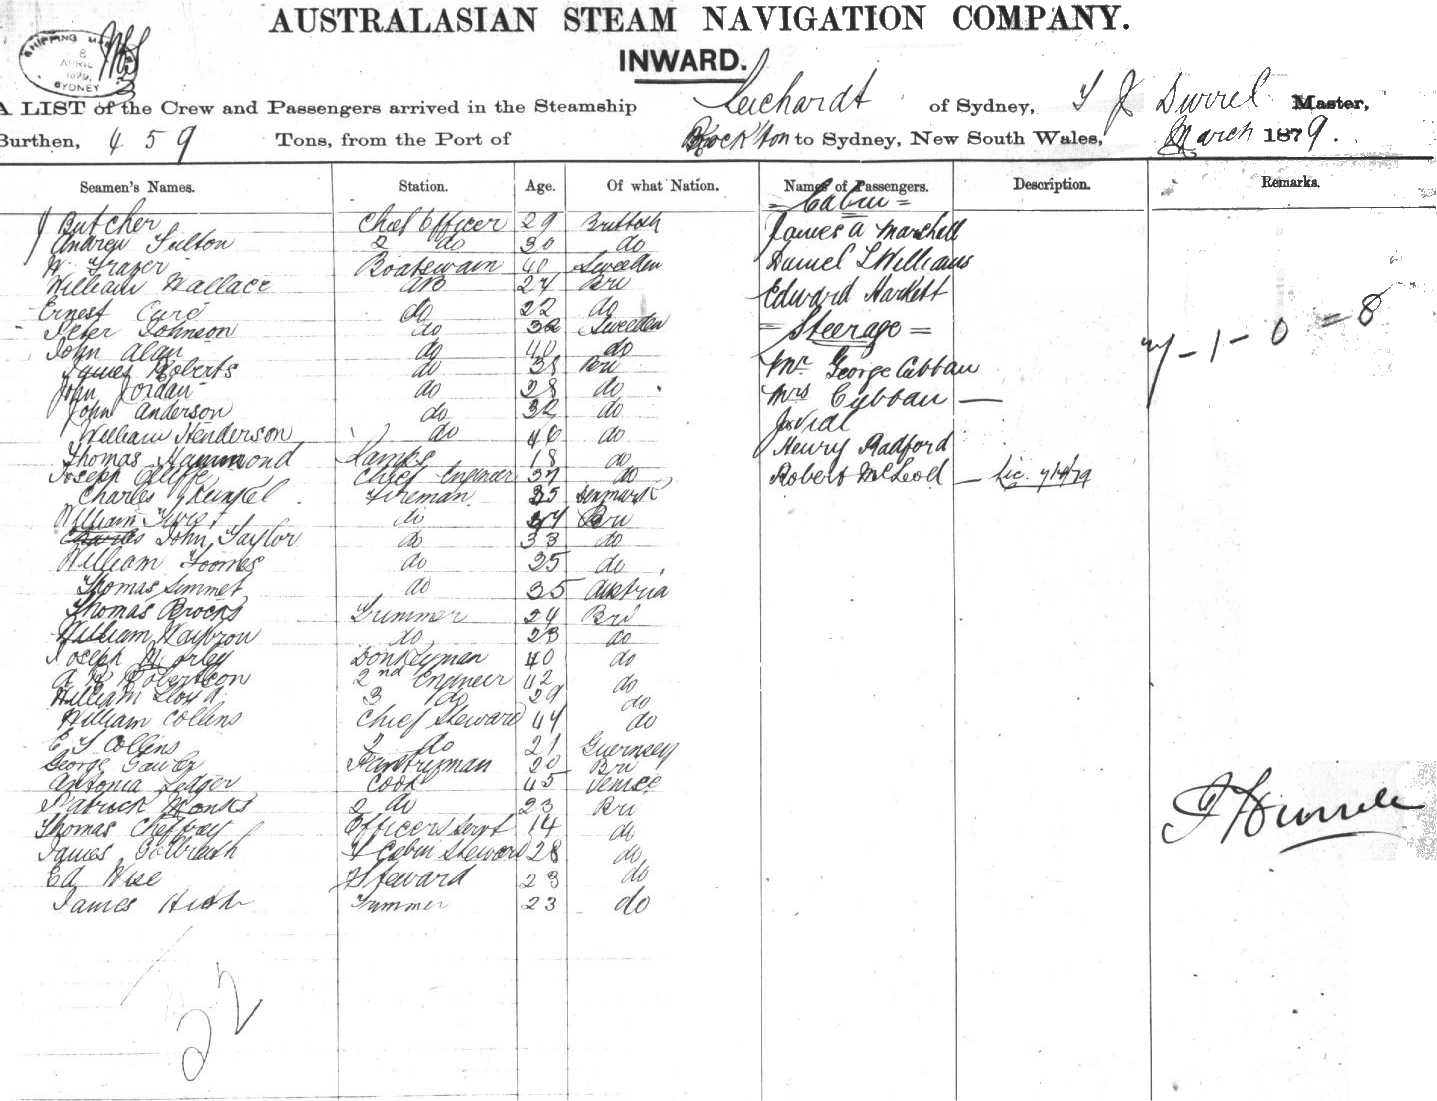 AUSTRALASIAN STEAM NAVIGATION COMPANY.
INWARD.
SHIPPING
8
APRIL
1879.
SYDNEY
A LIST of the Crew and Passengers arrived in the Steamship Leichardt of Sydney, T J Durrel Master,
Burthen, 459 Tons, from the Port of Rock'ton to Sydney, New South Wales, March 1879.
Seamen's Names. Station. Age. Of what Nation. Names of Passengers. Description. Remarks.
= Cabin =
J Butcher Chief Officer 29 British James A Marshell
Andrew Fulton 2 do 30 do
W. Frazer Boatswain 40 Sweeden Daniel L Williams
William Wallace AB 27 Bri Edward Harkett
Ernest Curé do 22 do
Peter Johnson do 32 Sweeden = Steerage =
7 - 1 - 0 = 8
John Alan do 40 do
James Roberts do 38 Bri Mr. George Cibbau
John Jordan do 28 do Mrs Cubbau —
John Anderson do 32 do J Vidl
William Henderson do 40 do Henry Radford
Thomas Hammond Lamps 18 do
Joseph Chief Engineer 37 do Robert McLeod — Lic. 7/4/79
Charles Fireman 35 Denmark
William do Bri
John Taylor do 33 do
William Toomes do 35 do
Thomas Simmet do 35 Austria
Thomas Brooks Trimmer 24 Bri
William Waybrow do 23 do
Joseph Morley Donkeyman 40 do
A R Robertson 2nd Engineer 42 do
William Lloyd 3 do 29 do
William Collins Chief Steward 44 do
E T Collins 2 do 21 Guernsey
George Gawler Pantryman 20 Bri
Antonia Ledger Cook 45 Venice
Patrick Monks 2 do 23 Bri
Thomas Cheffrey Officers Servt 14 do
James Galbraith F Cabin Steward 28 do
Ed Wise F Steward 23 do
James Trimmer 23 do
22